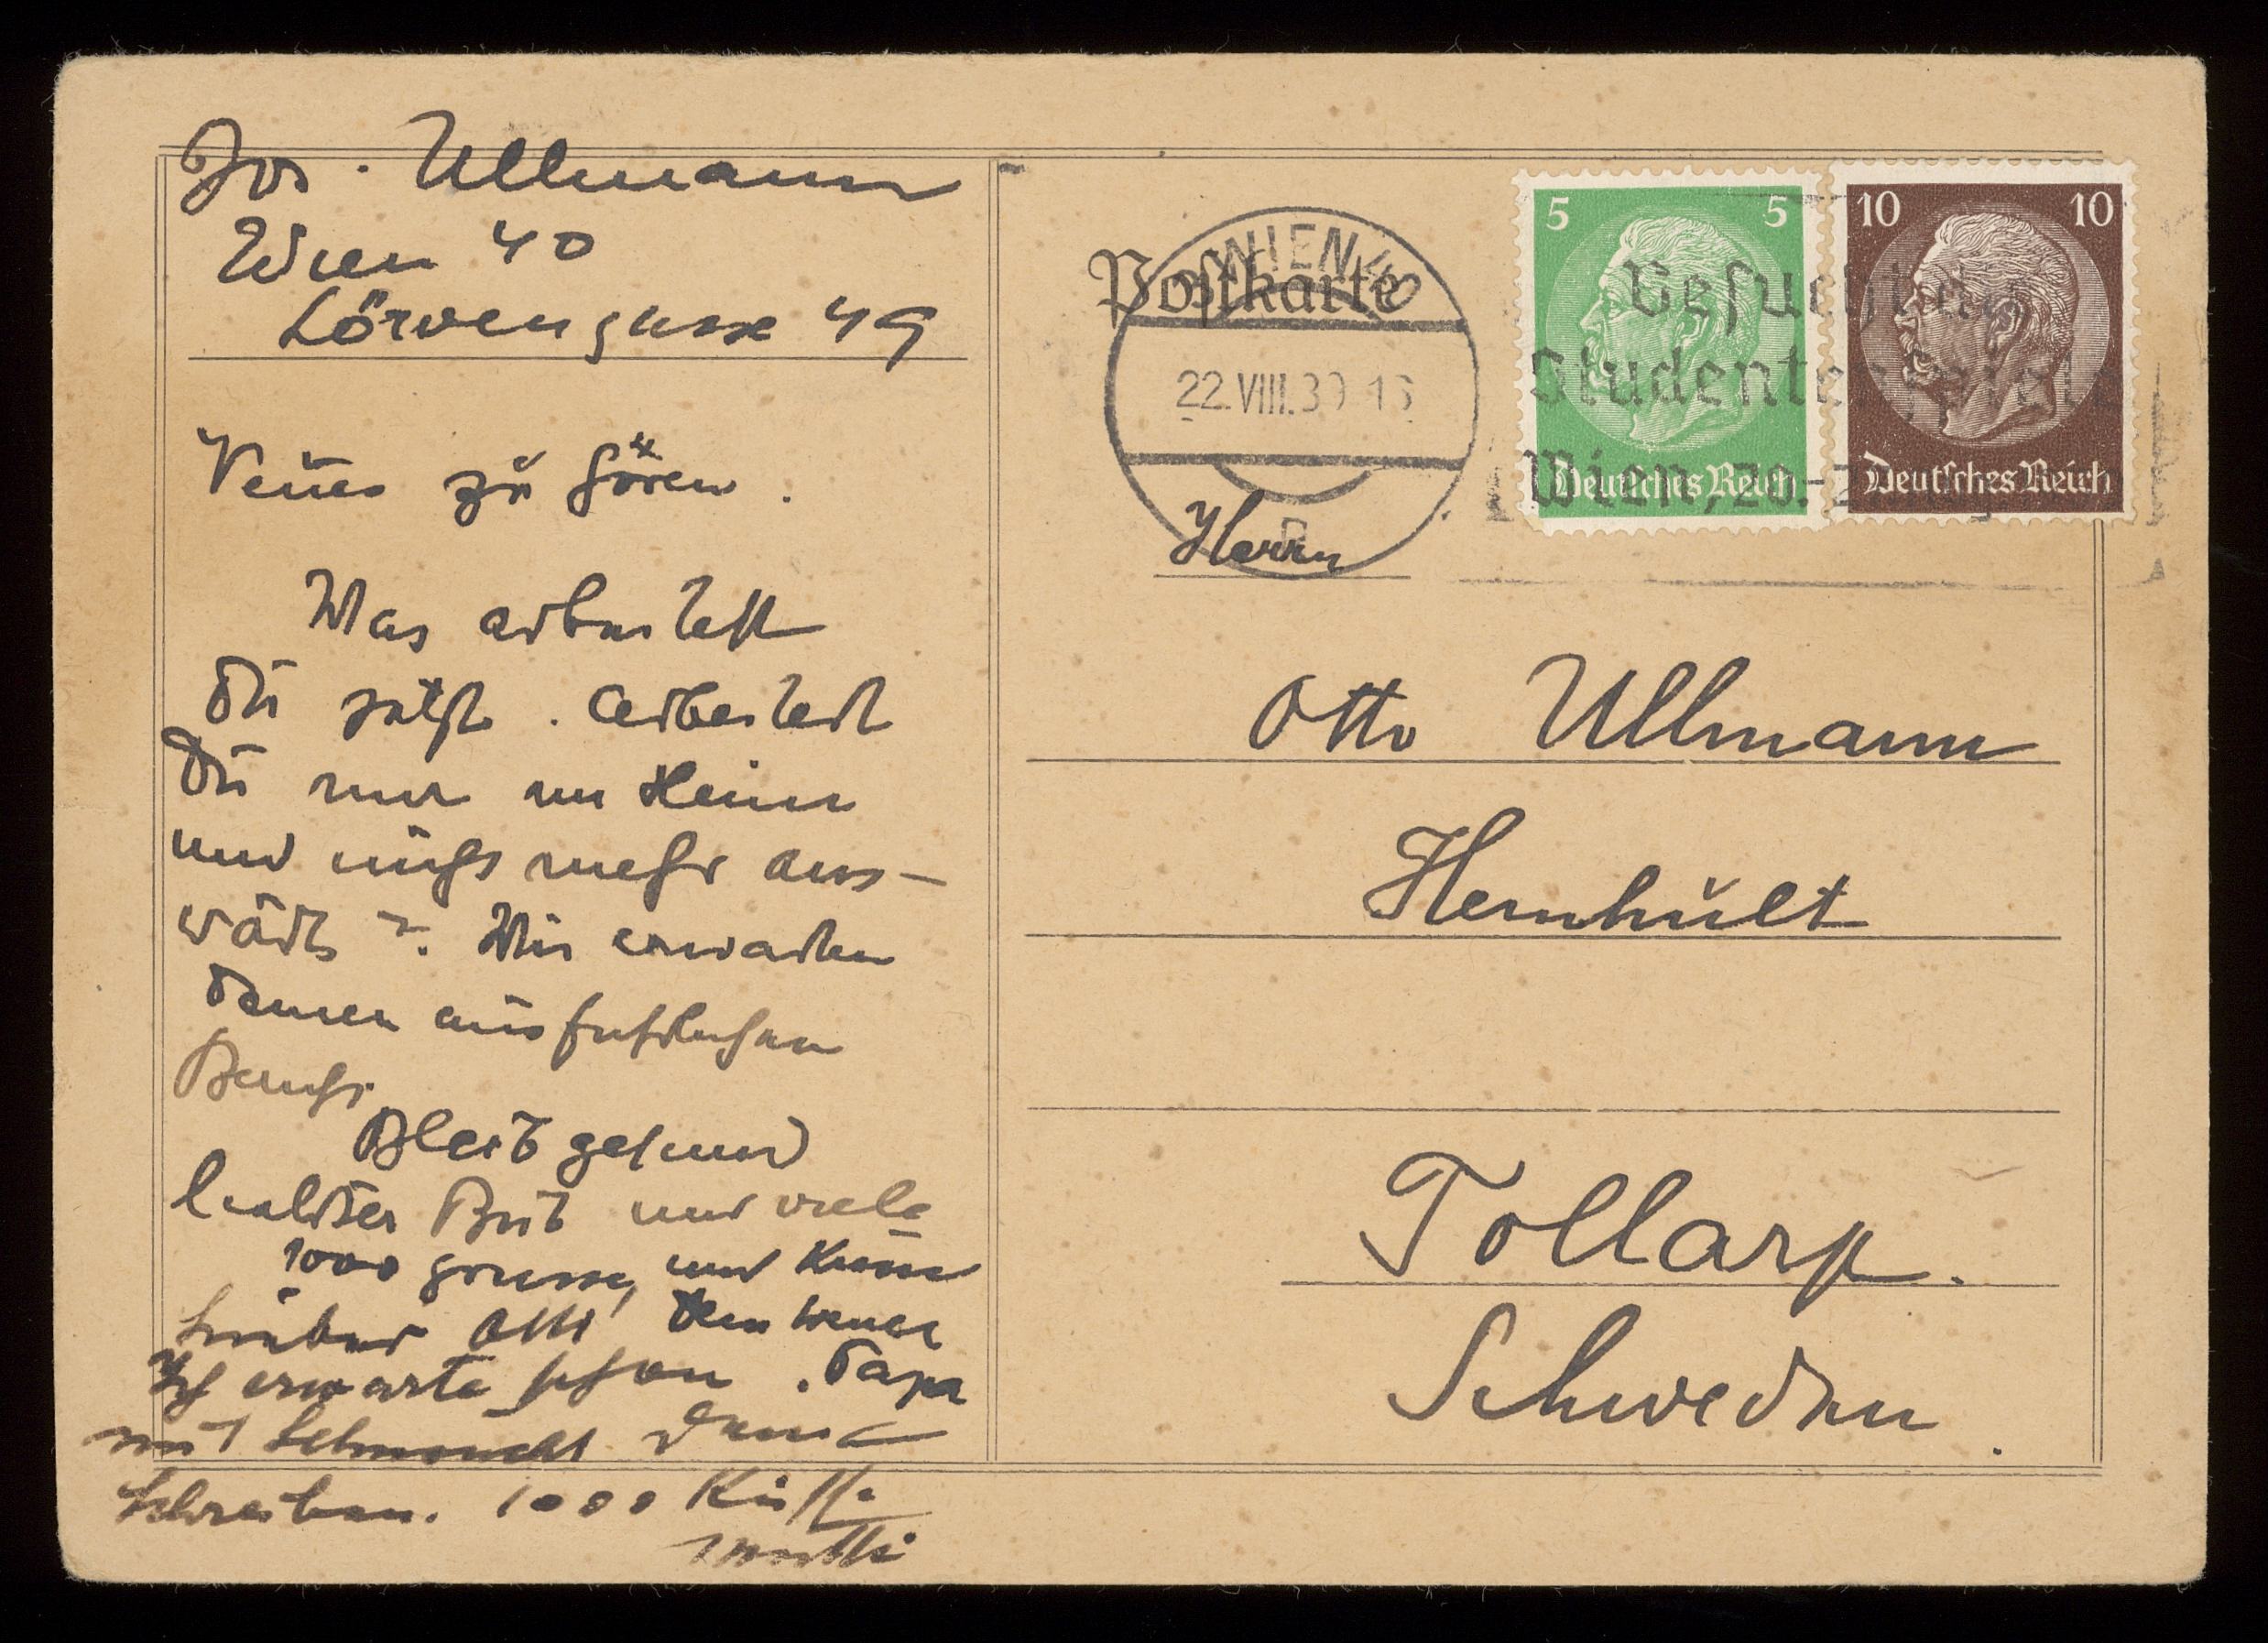 Jos. Ullmann
Wien 40
Löwengasse 49
Neues zu hören.
Was arbeitest
Du jetzt. Arbeitest
Du nur im Heim
und nichts mehr aus-
wärts? Wir erwarten
Deinen ausführlichen
Bericht.
Bleib gesund
liebster Bub und viele
1000 Grüsse, und Küsse
Otto Dein treuer
Papa
Ich erwarte schon
mit Sehnsucht Deine
Schreiben. 1000 Küsse
Mutti
Postkarte
WIEN 40
22.VIII.39 16
Besucht die
Studentenspiele
Wien, 20.-2
5 5
Deutsches Reich
10 10
Deutsches Reich
Herrn
Otto Ullmann
Hemhult
Tollarp.
Schweden.